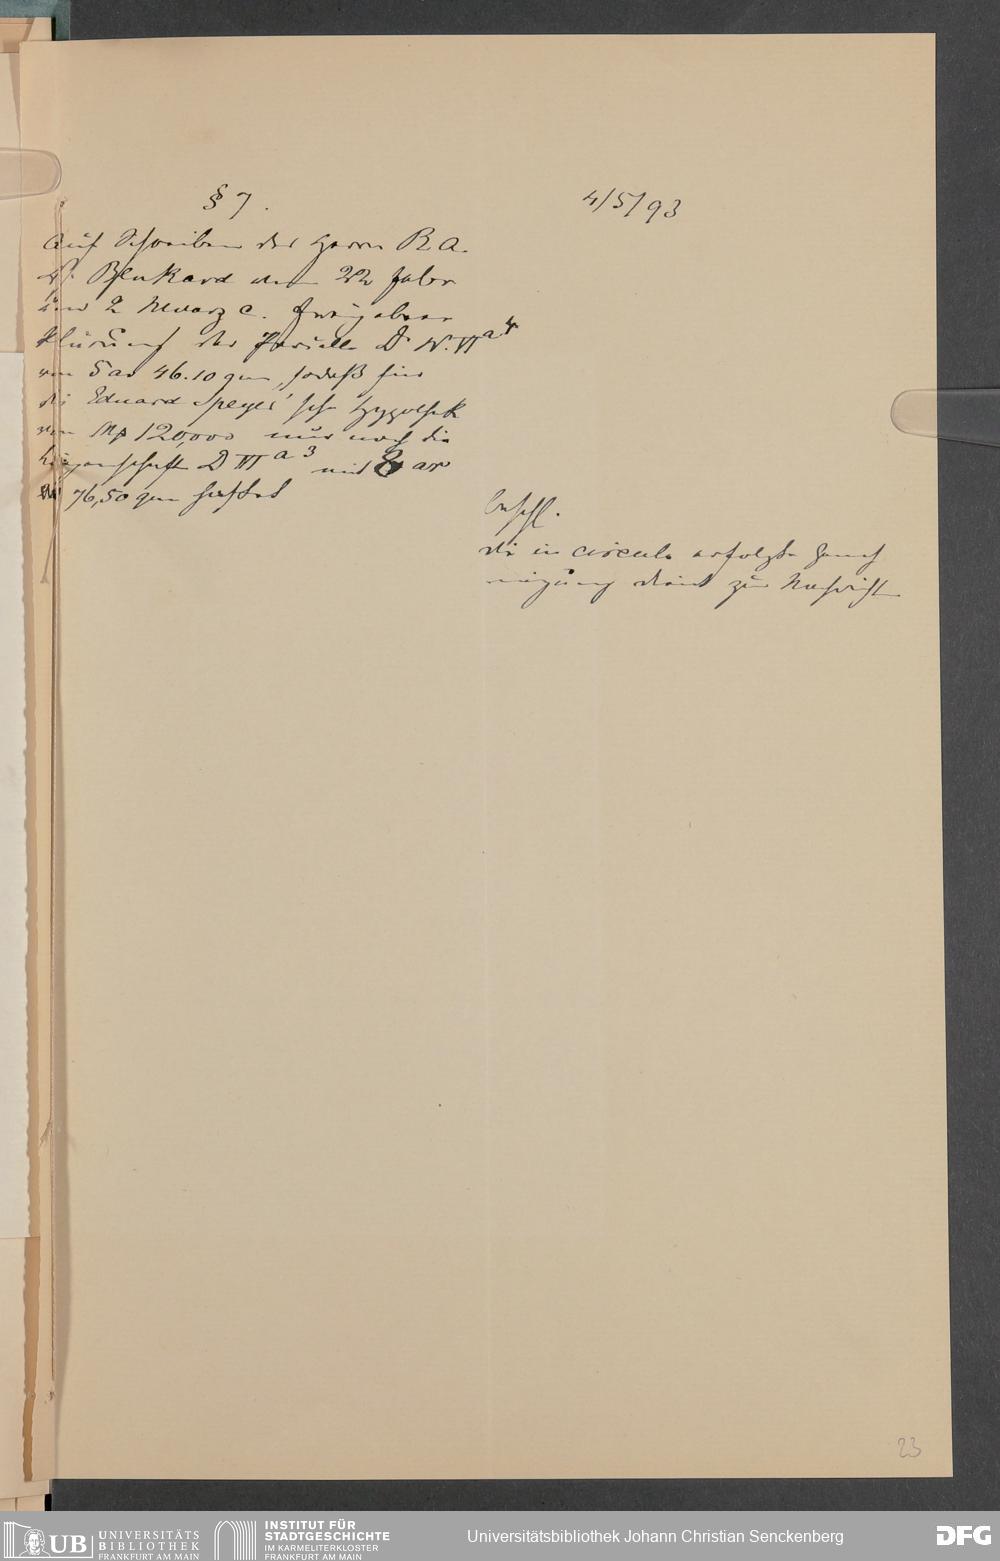 § 7.
4/5/93
Auf Schreiben des Herrn R.A.
Dr. Benkard vom 22 Febr
und 2 Maerz c. Freigabeer
klärung der Parzelle D N. VI a 4
von 5 ar 46.10 qm, sodaß für
die Eduard Speyer'sche Hypothek
von Mk 120,000 nur noch die
Liegenschaft D VI a 3 mit 8 ar
76,50 qm haftet
beschl.
die in circulo erfolgte Geneh
migung dient zur Nachricht
23
UB UNIVERSITÄTS
BIBLIOTHEK
FRANKFURT AM MAIN
INSTITUT FÜR
STADTGESCHICHTE
IM KARMELITERKLOSTER
FRANKFURT AM MAIN
Universitätsbibliothek Johann Christian Senckenberg
DFG